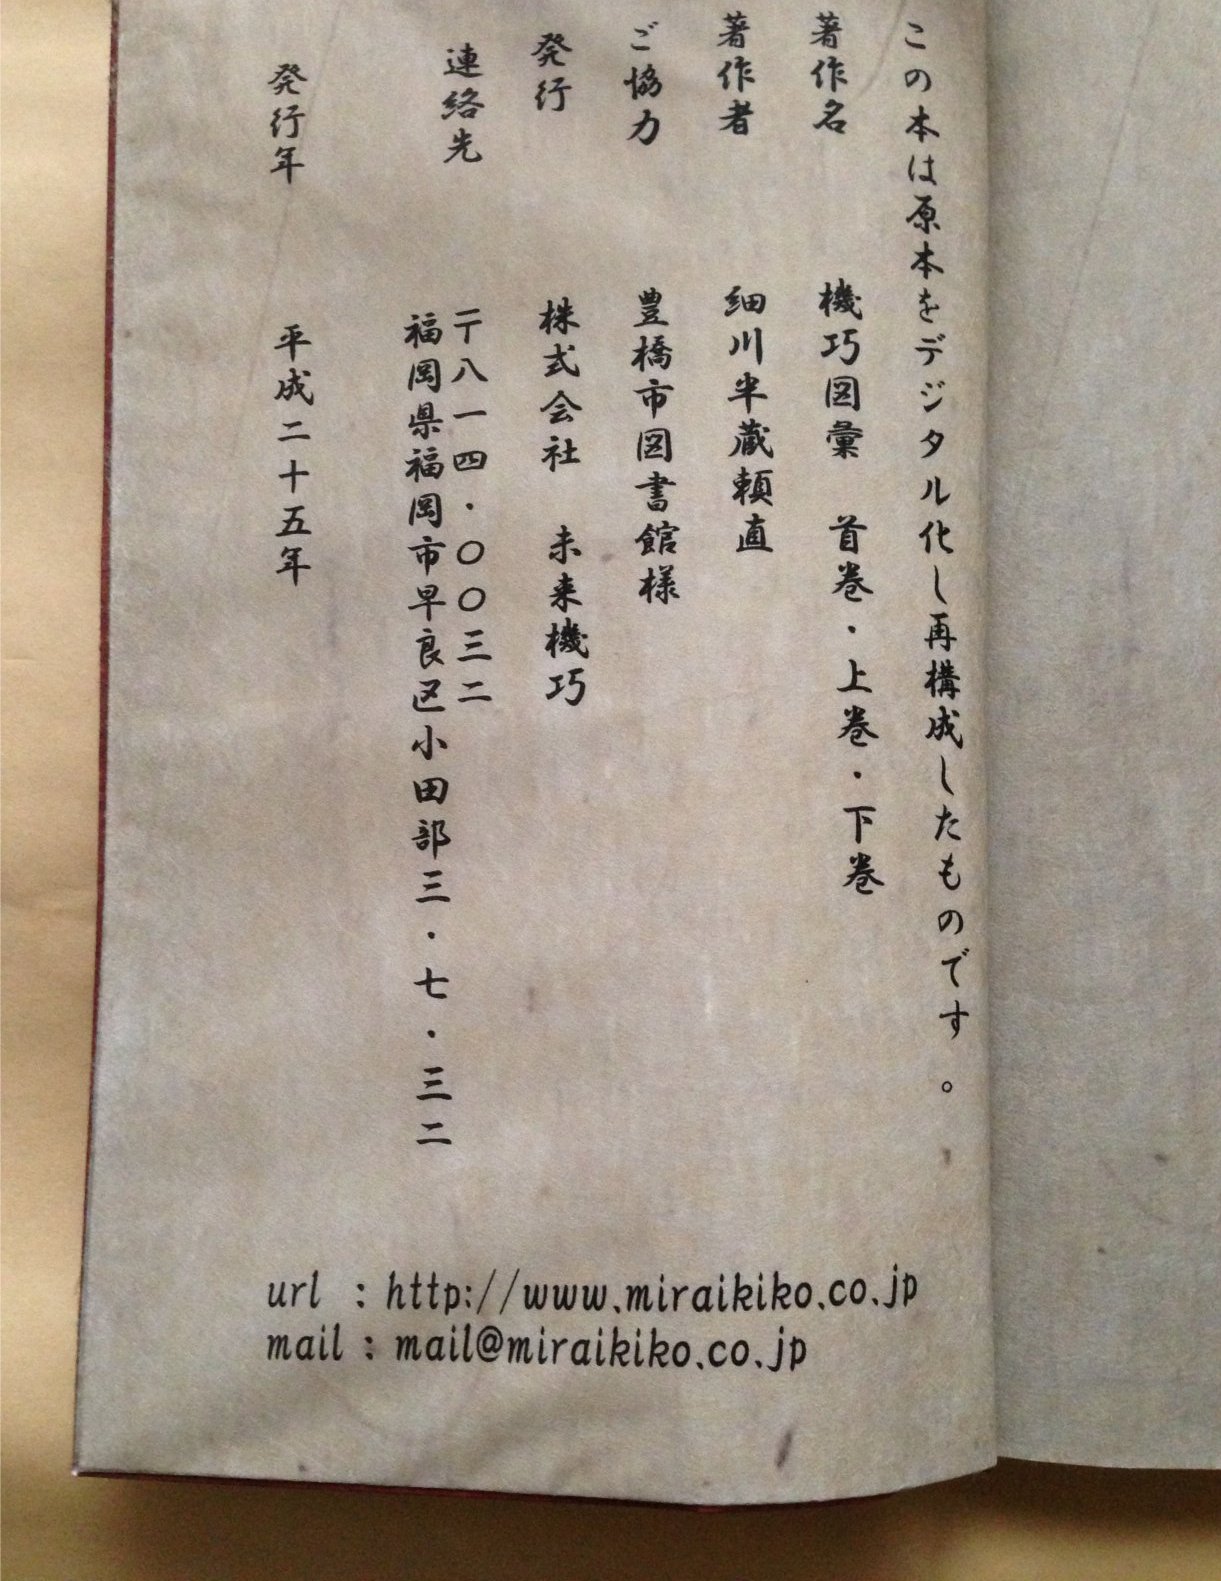 この本は原本をデジタル化し再構成したものです。
著作名 機巧図彙 首巻・上巻・下巻
著作者 細川半蔵頼直
ご協力 豊橋市図書館様
発行 株式会社 未来機巧
連絡先 〒八一四・〇〇三二
福岡県福岡市早良区小田部三・七・三二
発行年 平成二十五年
url : http://www.miraikiko.co.jp
mail : mail@miraikiko.co.jp